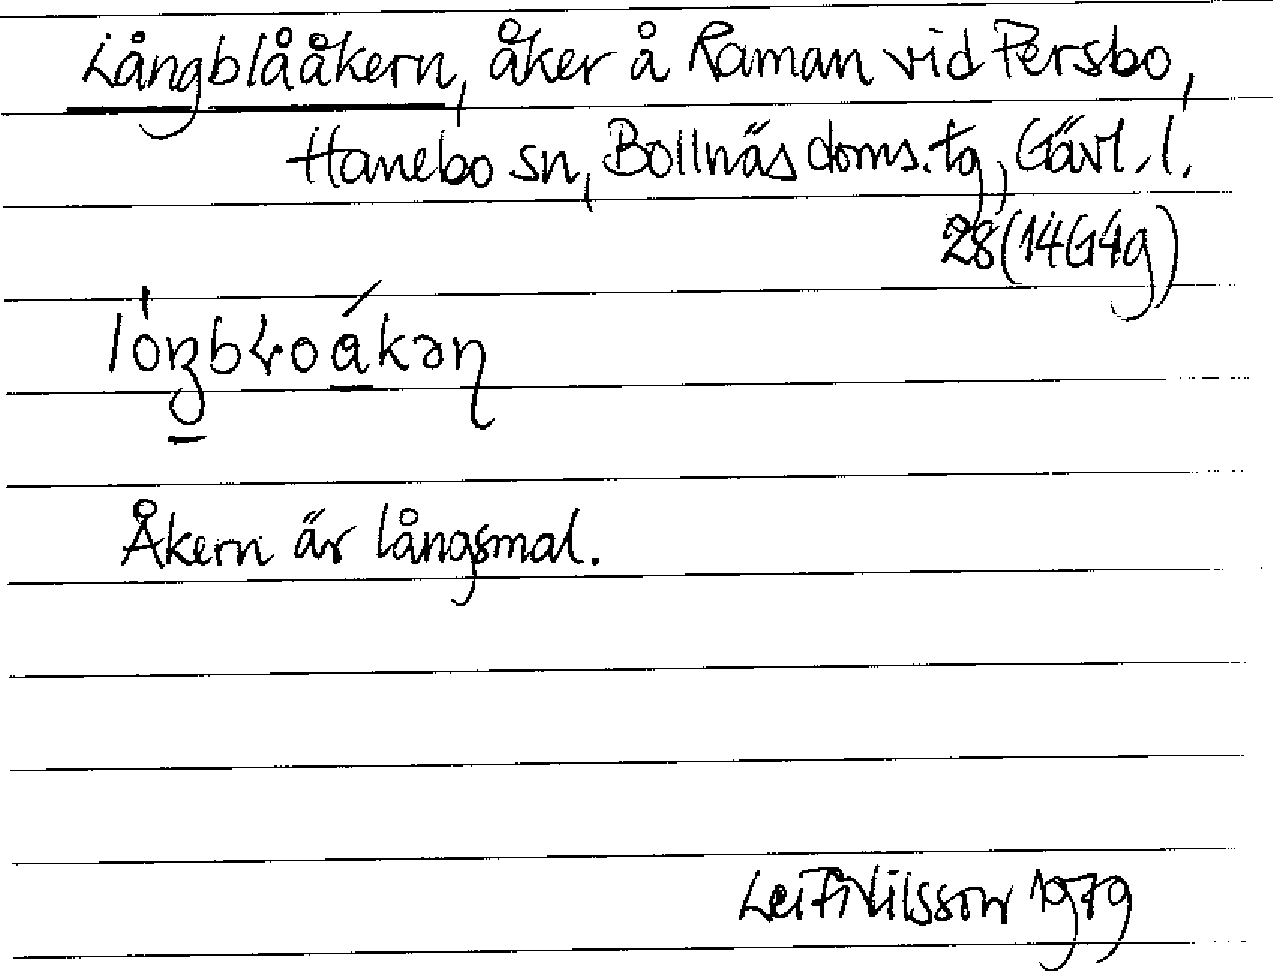 Långblååkern, åker å Raman vid Persbo,
Hanebo sn, Bollnäs doms.tg, Gävl. l.
28 (14G4g)
Åkern är långsmal.
Leif Nilsson 1979